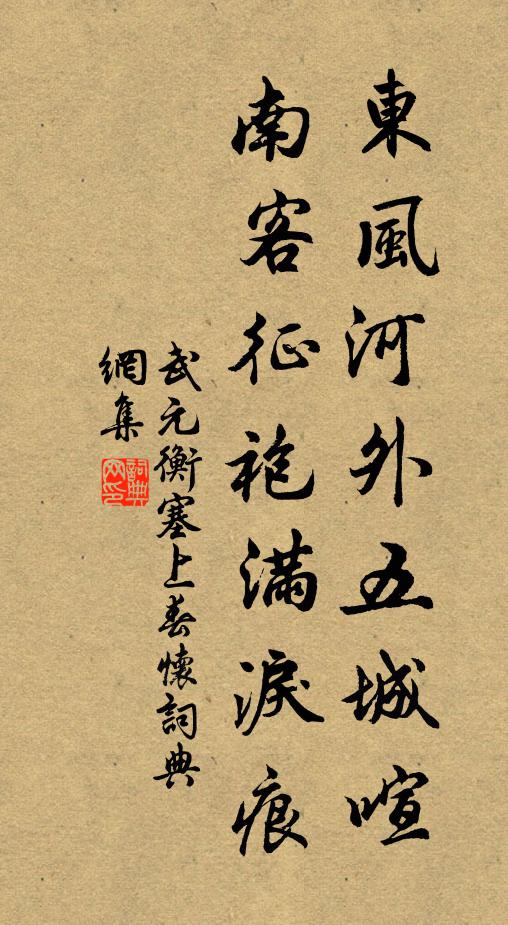 東風河外五城喧
南客征袍滿淚痕
武元衡塞上春懷詞典
網集
詞典
网印